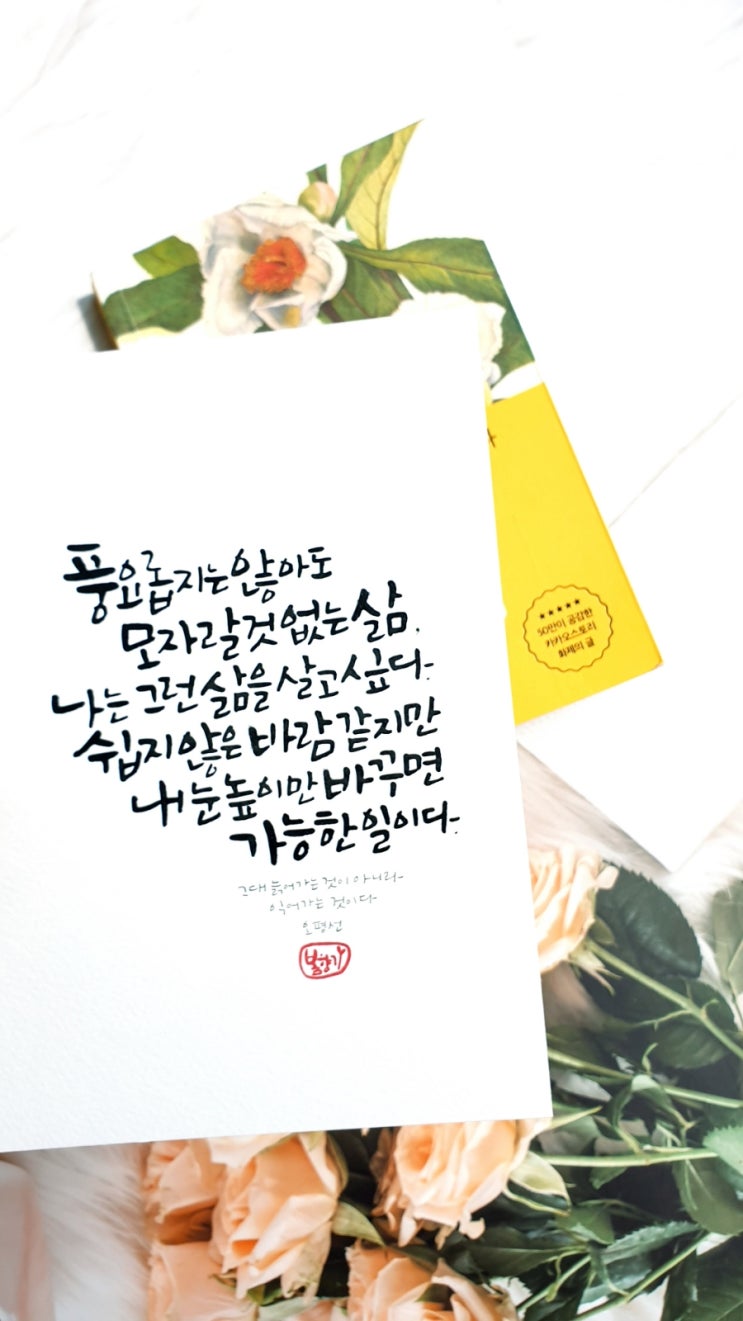 ★★★★★
50만이 공감한
카카오스토리
화제의 글
풍요롭지는 않아도
모자랄것 없는 삶.
나는 그런 삶을 살고 싶다.
쉽지 않은 바람 같지만
내 눈높이만 바꾸면
가능한 일이다.
그대 늙어가는 것이 아니라
익어가는 것이다
오평선
봄향기